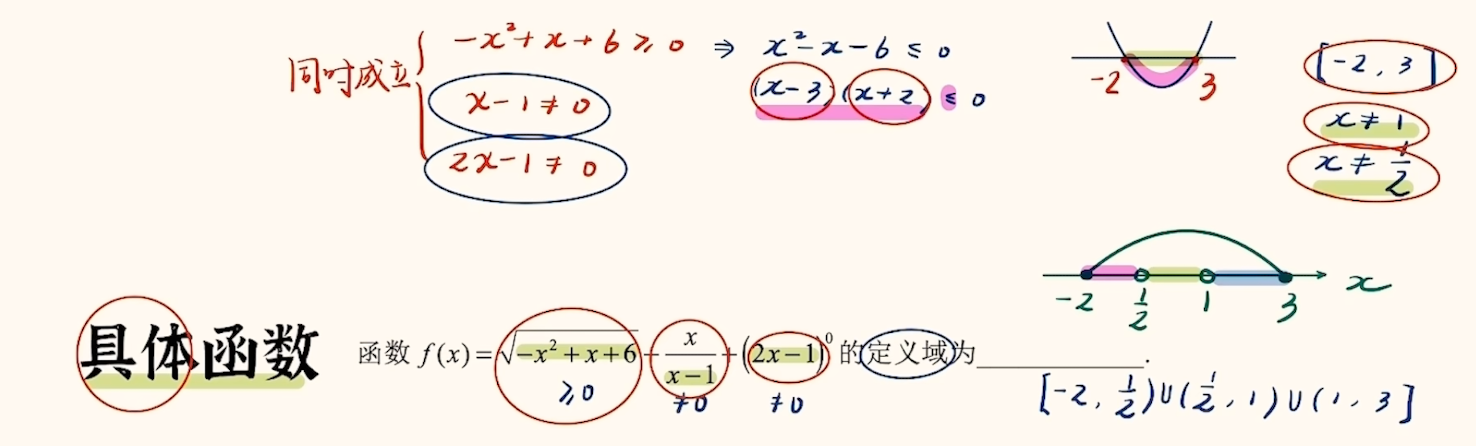 同时成立 { -x²+x+6 ≥ 0 ⇒ x²-x-6 ≤ 0
x-1 ≠ 0 (x-3)(x+2) ≤ 0
2x-1 ≠ 0
-2 3
[-2, 3]
x ≠ 1
x ≠ 1/2
-2 1/2 1 3 x
具体函数 函数 f(x)=√(-x²+x+6)+x/(x-1)+(2x-1)⁰ 的定义域为____________.
≥0 ≠0 ≠0
[-2, 1/2)∪(1/2, 1)∪(1, 3]